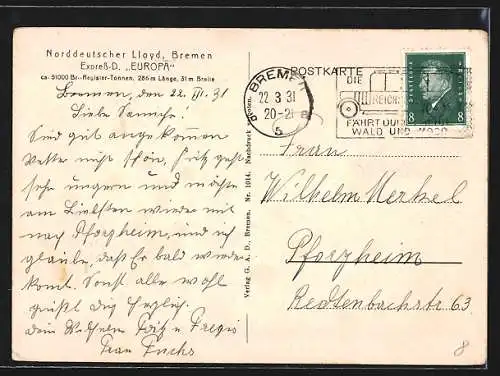 Norddeutscher Lloyd, Bremen
Expreß-D. „EUROPA"
ca. 51000 Br.-Register-Tonnen, 286 m Länge, 31 m Breite
Bremen, den 22. III. 31
Liebe
Sind gut angekommen
Wetter nicht schön, Fritz geht
sehr ungern und möchte
am Liebsten wieder mit
nach Pforzheim, und ich
glaube, daß Er bald wieder
komt. Sonst alle wohl
grüßt Dich herzlich.
dein Wilhelm Fritz u
Frau Fuchs
Verlag G. A. D., Bremen, Nr. 1014. Nachdruck
POSTKARTE
BREMEN
22.3.31
20-21
5
DIE
REICHS
FÄHRT DURCH
WALD UND
8 8
Frau
Wilhelm Merkel
Pforzheim
Redtenbachstr 63
8